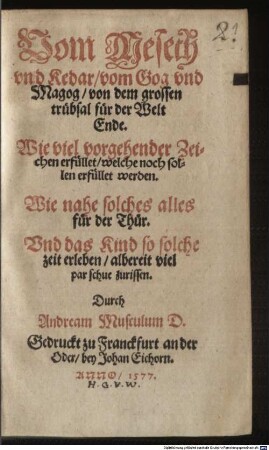 2!
Vom Mesech
vnd Kedar/vom Gog vnd
Magog/von dem grossen
trübsal für der Welt
Ende.
Wie viel vorgehender Zei-
chen erfüllet/welche noch sol-
len erfüllet werden.
Wie nahe solches alles
für der Thür.
Vnd das Kind so solche
zeit erleben/albereit viel
par schue zurissen.
Durch
Andream Musculum D.
Gedruckt zu Franckfurt an der
Oder/bey Johan Eichorn.
ANNO/1577.
H. G. V. W.